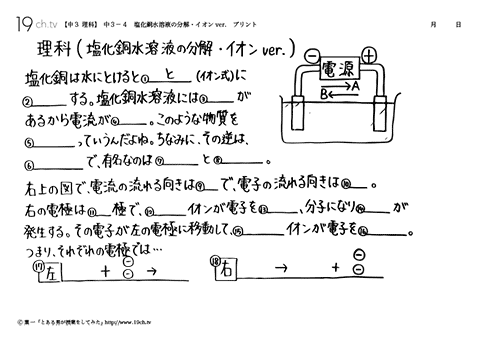 19ch.tv 【中3 理科】 中3－4 塩化銅水溶液の分解・イオンver. プリント 月 日
理科(塩化銅水溶液の分解・イオンver.)
塩化銅は水にとけると①＿＿と＿＿(イオン式)に
②＿＿する。塩化銅水溶液には③＿＿が
あるから電流が④＿＿。このような物質を
⑤＿＿っていうんだよね。ちなみに、その逆は、
⑥＿＿で、有名なのは⑦＿＿と⑧＿＿。
⊖ 電源 ⊕
A
B
右上の図で、電流の流れる向きは⑨＿＿で、電子の流れる向きは⑩＿＿。
右の電極は⑪＿＿極で、⑫＿＿イオンが電子を⑬＿＿、分子になり⑭＿＿が
発生する。その電子が左の電極に移動して、⑮＿＿イオンが電子を⑯＿＿。
つまり、それぞれの電極では…
⑰左 ＋ ⊖⊖ →
⑱右 → ＋ ⊖⊖
© 葉一「とある男が授業をしてみた」http://www.19ch.tv